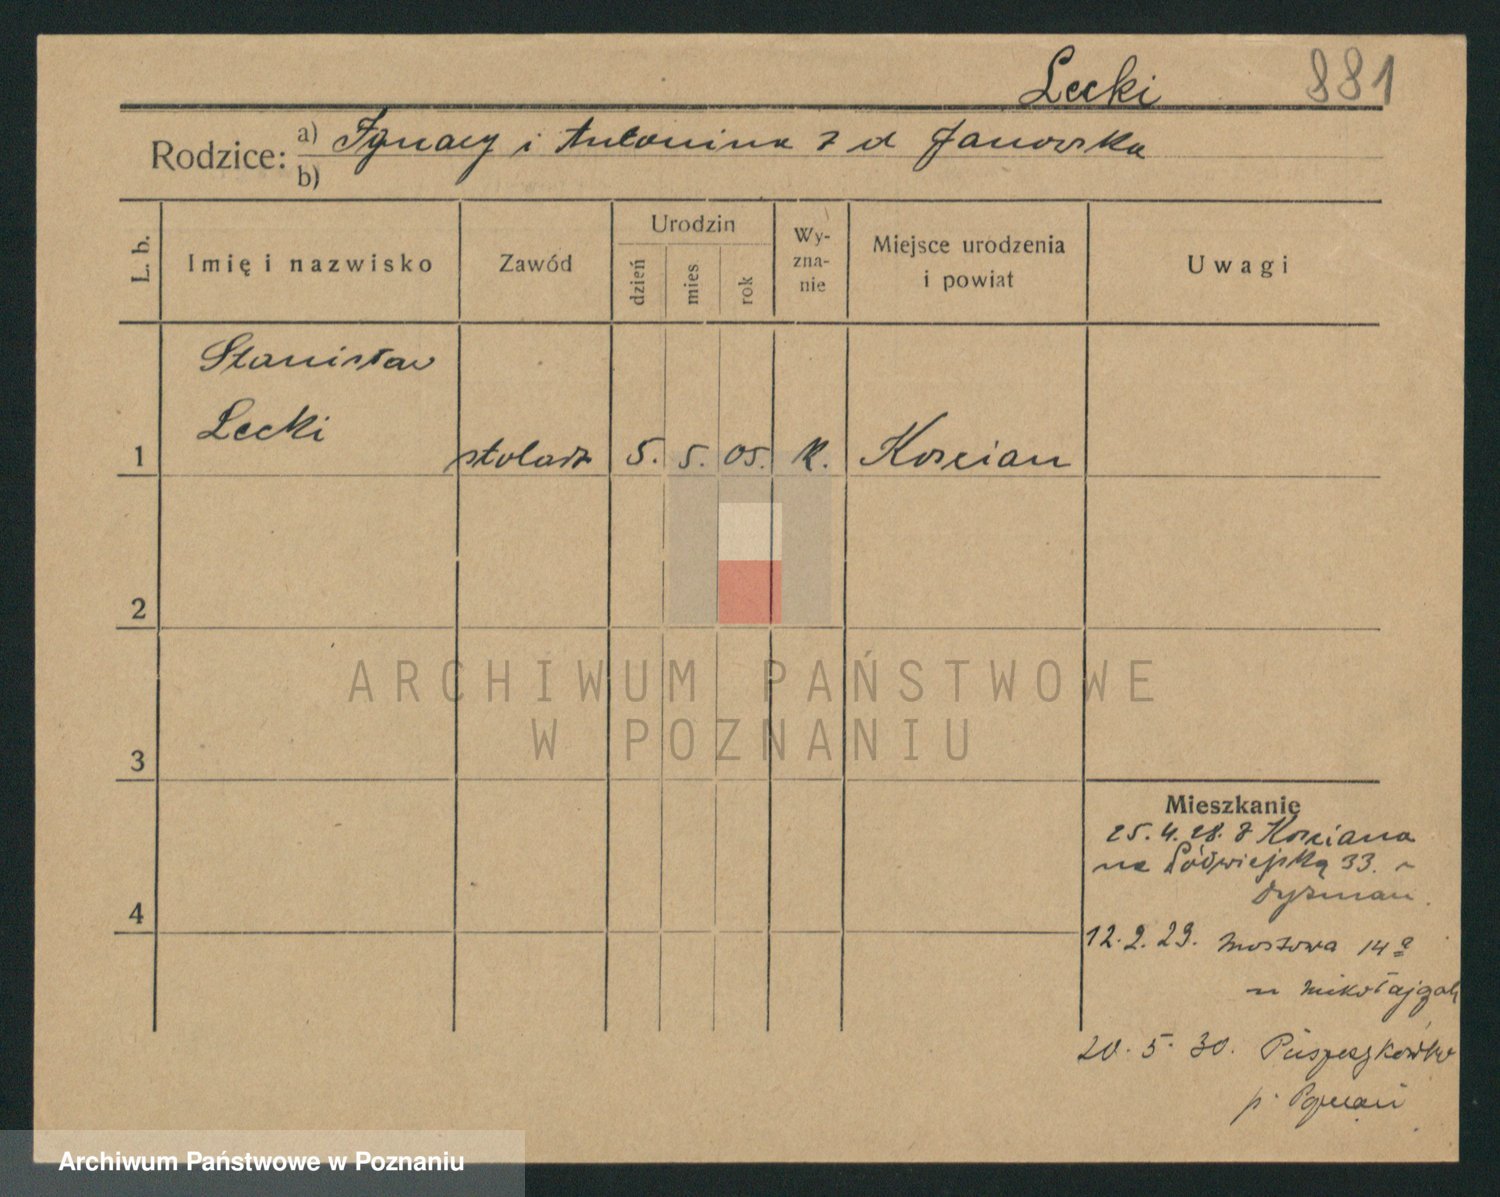 Lecki 881
Rodzice: a) Ignacy i Antonina z d Janowska
b)
L. b. Imię i nazwisko Zawód Urodzin dzień mies. rok Wy-zna-nie Miejsce urodzenia i powiat Uwagi
Stanisław
Lecki
1 stolarz 5. 5. 05. k. Kościan
2
ARCHIWUM PAŃSTWOWE
W POZNANIU
3
Mieszkanie
25.4.28. z Kościana
na 33.
4
12.2.29. Mostowa 14a
u
20. 5. 30.
p.
Archiwum Państwowe w Poznaniu